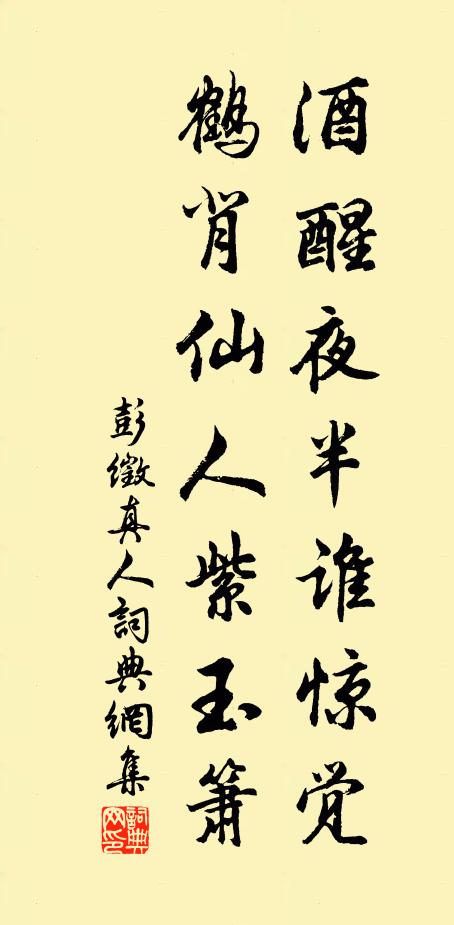 酒醒夜半谁惊觉
鹤背仙人紫玉箫
彭徽真人詞典網集
詞典
网印